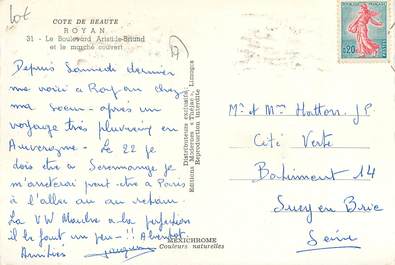 lot
COTE DE BEAUTE
ROYAN
31 - Le Boulevard Aristide-Briand
et le marché couvert
17
Depuis Samedi dernier
me voici à Royan chez
ma soeur - après un
voyage très pluvieux en
Auvergne - Le 22 je
dois être à Seremange je
m'arrêterai peut-être à Paris
à l'aller ou au retour.
La VW Marche à la perfection
il le faut un peu - !! A bientôt.
Amitiés
Distributeurs exclusifs :
Editions Modernes « Théojac », Limoges
Reproduction interdite
MEXICHROME
Couleurs naturelles
0,20
Mr et Mme Hatton. J.P.
Cité Verte
Batiment 14
Sucy en Brie
Seine